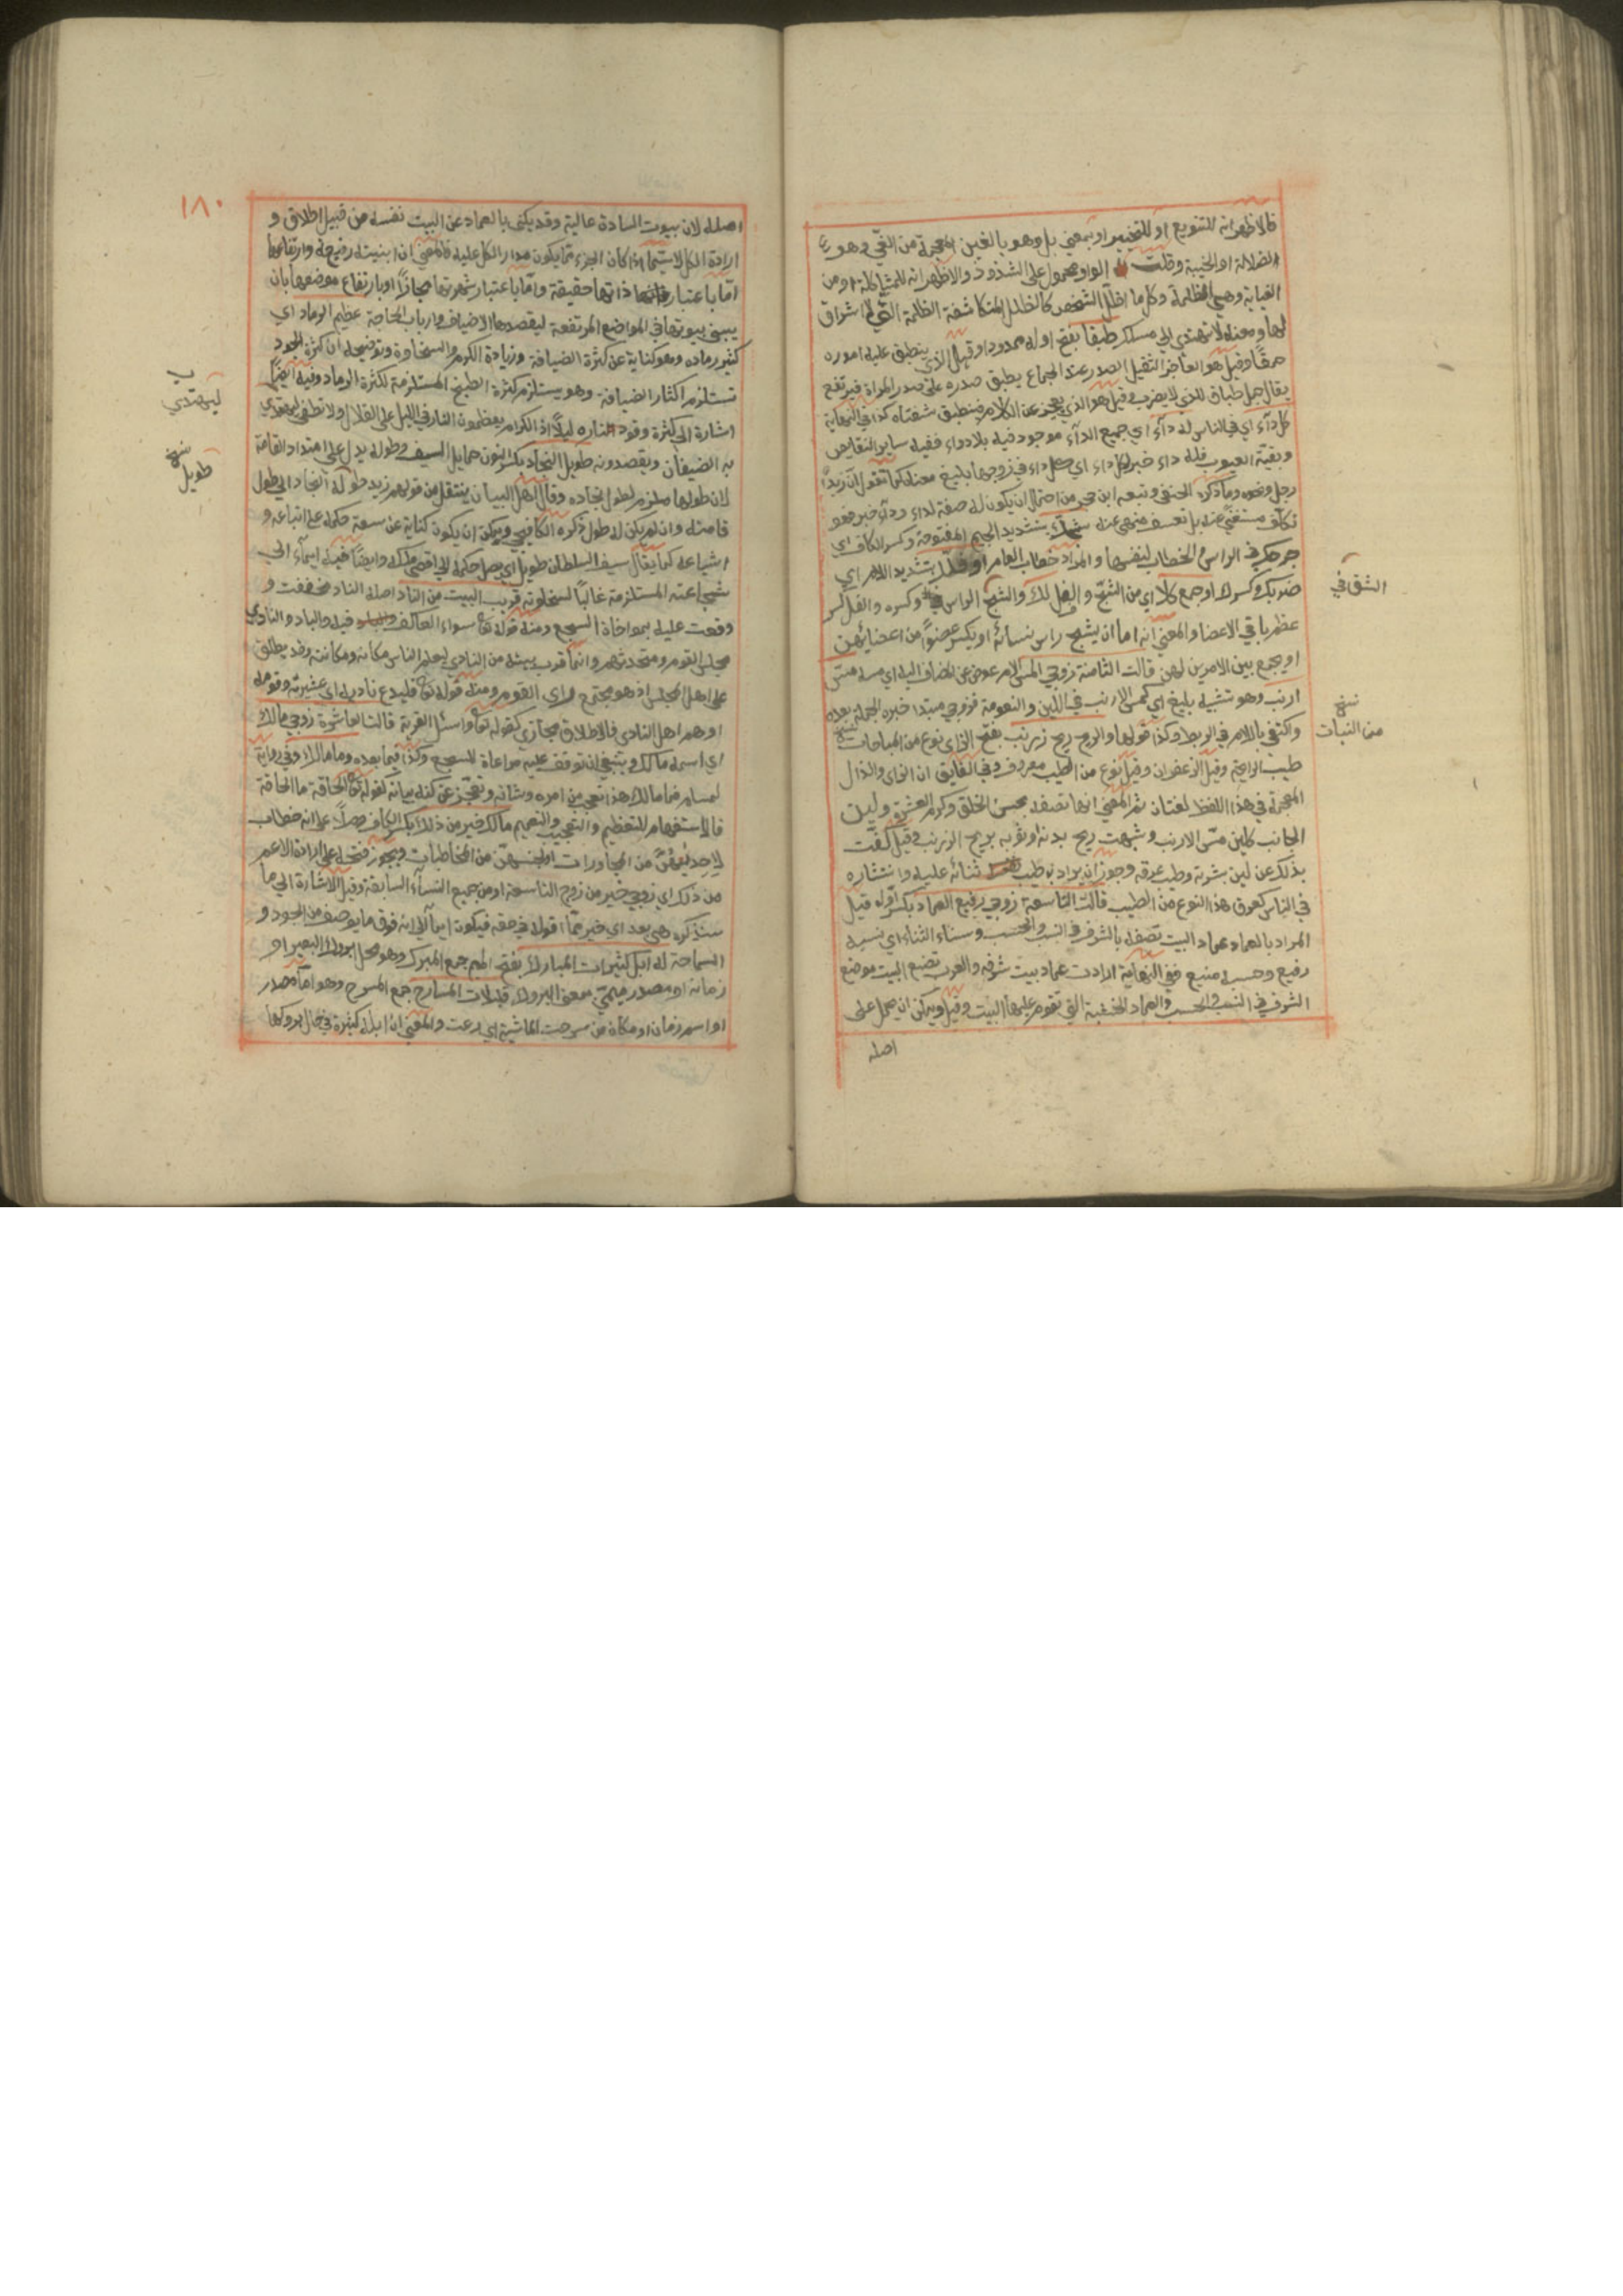 فالاظهر انه للتنويع او للتخيير او بمعني بل وهو بالغين المعجمة من الغي وهو
الضلالة او الخيبة وقلت الواو محمول على الشذوذ والاظهر انه للمشاكلة او من
الغياية وهي الظلمة وكل ما اظل الشخص كالظلل المتكاشفة الظلمة التي لا اشراق
لها ومعناه لا يهتدي الي مسلك طباقا بفتح اوله ممدودا وقيل الذي ينطبق عليه اموره
حمقا وقيل هو العاجز الثقيل الصدر عند الجماع يطبق صدره على صدر المراة فيرتفع
يقال جمل طباق للذي لا يضرب وقيل هو الذي يعجز عن الكلام فينطبق شفتاه كذا في النهاية
كل داء اي في الناس له داء اي جميع الداء موجود فيه بلا دواء ففيه ساير النقايص
وبقية العيوب فله داء خبر لكل داء اي كل داء في زوجها بليغ معناه كما تقول ان زيدا
رجل ونحوه وما ذكره الحنفي وتبعه ابن حجر من احتمال ان يكون له صفة لداء وداء خبر فهو
تكلف مستغني عنه بل تعسف منهي عنه شجك بتشديد الجيم المفتوحة وكسر الكاف اي
جرحك في الراس والخطاب لنفسها والمراد خطاب العام او فلك بتشديد اللام اي
ضربك وكسرك او جمع كلا اي من الشج والفل لك والشج الراس وكسره والفل كسر
عظم باقي الاعضا والمعني انه اما ان يشج راس نسائه او يكسر عضوا من اعضائهن
او يجمع بين الامرين لهن قالت الثامنة زوجي المس اللام عوض عن المضاف اليه اي مسه مس
ارنب وهو تشبيه بليغ اي كمس الارنب في اللين والنعومة فزوجي مبتدا خبره الجملة بعده
واكتفي باللام في الربط وكذا قولها والريح ريح زرنب بفتح الزاي نوع من النباتات
طيب الرائحة وقيل الزعفران وقيل نوع من الطيب معروف وفي الفايق ان الزاي والذال
المعجمة في هذا اللفظ لغتان ثم المعني انها تصفه بحسن الخلق وكرم العشرة ولين
الجانب كلين مس الارنب وشبهت ريح بدنه او ثوبه بريح الزرنب وقيل كنت
بذلك عن لين بشرته وطيب عرقه وجوز ان يراد به طيب ثنائه عليه وانتشاره
في الناس كعرق هذا النوع من الطيب قالت التاسعة زوجي رفيع العماد بكسر اوله قيل
المراد بالعماد عماد البيت تصفه بالشرف في النسب والحسب وسناء الثناء اي نسبه
رفيع وحسبه منيع ففي النهاية ارادت عماد بيت شرفه والعرب تضع البيت موضع
الشرف في النسب والحسب والعماد الخشبة التي تقوم عليها البيت وقيل ويمكن ان يحمل على
اصله
الشق في
نسخ
من النبات
١٨٠
اصله لان بيوت السادة عالية وقد يكني بالعماد عن البيت نفسه من قبيل اطلاق و
ارادة الكل لا سيما اذا كان الجزء مما يكون مدار الكل عليه فالمعني ان ابنيته رفيعة وارتفاعها
اما باعتبار ذاتها حقيقة واما باعتبار شهرتها مجازا او بارتفاع موضعها بان
يبني بيوتها في المواضع المرتفعة ليقصدها الاضياف وارباب الحاجة عظيم الرماد اي
كثير رماده وهو كناية عن كثرة الضيافة وزيادة الكرم والسخاوة وتوضيحه ان كثرة الجود
تستلزم اكثار الضيافة وهو يستلزم كثرة الطبخ المستلزمة لكثرة الرماد وفيه ايضا
اشارة الي كثرة وقود ناره ليلا اذ الكرام يعظمون النار في الليل على التلال ولا تطفي ليهتدي
به الضيفان ويقصدونه طويل النجاد بكسر النون حمايل السيف وطوله يدل على امتداد القامة
لان طولها ملزم لطول نجاده وقال اهل البيان ينتقل من قولهم زيد طويل النجاد الي طول
قامته وان لم يكن له طول ذكره الكافيجي ويمكن ان يكون كناية عن سعة حكمه على اتباعه و
اشياعه كما يقال سيف السلطان طويل اي يصل حكمه الي اقصي ملكه وايضا فيه ايماء الي
شجاعته المستلزمة غالبا لسخاوته قريب البيت من الناد اصله النادي فخففت و
وقعت عليه بمواخاة السجع ومنه قوله تعا سواء العاكف فيه والباد والنادي
مجلس القوم ومتحدثهم وانما قرب بيته من النادي ليعلم الناس مكانه ومكانته وقد يطلق
على اهل المجلس اذ هو مجتمع راي القوم ومنه قوله تعا فليدع ناديه اي عشيرته وقومه
او هم اهل النادي فالاطلاق مجازي كقوله تعا واسئل القرية قالت العاشرة زوجي مالك
اي اسمه مالك وينبغي ان توقف عليه مراعاة للسجع وكذا فيما بعده وما مالك وفي رواية
لمسلم فما مالك هذا تعجب من امره وشانه وتعجز عن كنه بيانه كقوله تعا الحاقة ما الحاقة
فالاستفهام للتعظيم والتعجيب والتعميم مالك خير من ذلك بكسر الكاف على انه خطاب
لاحديهن من المحاورات او لجنسهن من المخاطبات ويجوز فتحه على ارادة الاعم
من ذلك اي زوجي خير من زوج التاسعة او من جميع النساء السابقة وقيل الاشارة الي ما
ستذكره هي بعد اي خير مما اقوله في حقه فيكون ايماء الي انه فوق ما يوصف من الجود و
السماحة له ابل كثيرات المبارك بفتح الميم جمع المبرك وهو محل بروك البعير او
زمانه او مصدر ميمي بمعني البروك قليلات المسارح جمع المسرح وهو اما مصدر
او اسم زمان او مكان من سرحت الماشية اي رعت والمعني ان ابله كثيرة في حال بروكها
ليهتدي
نسخ
طويل